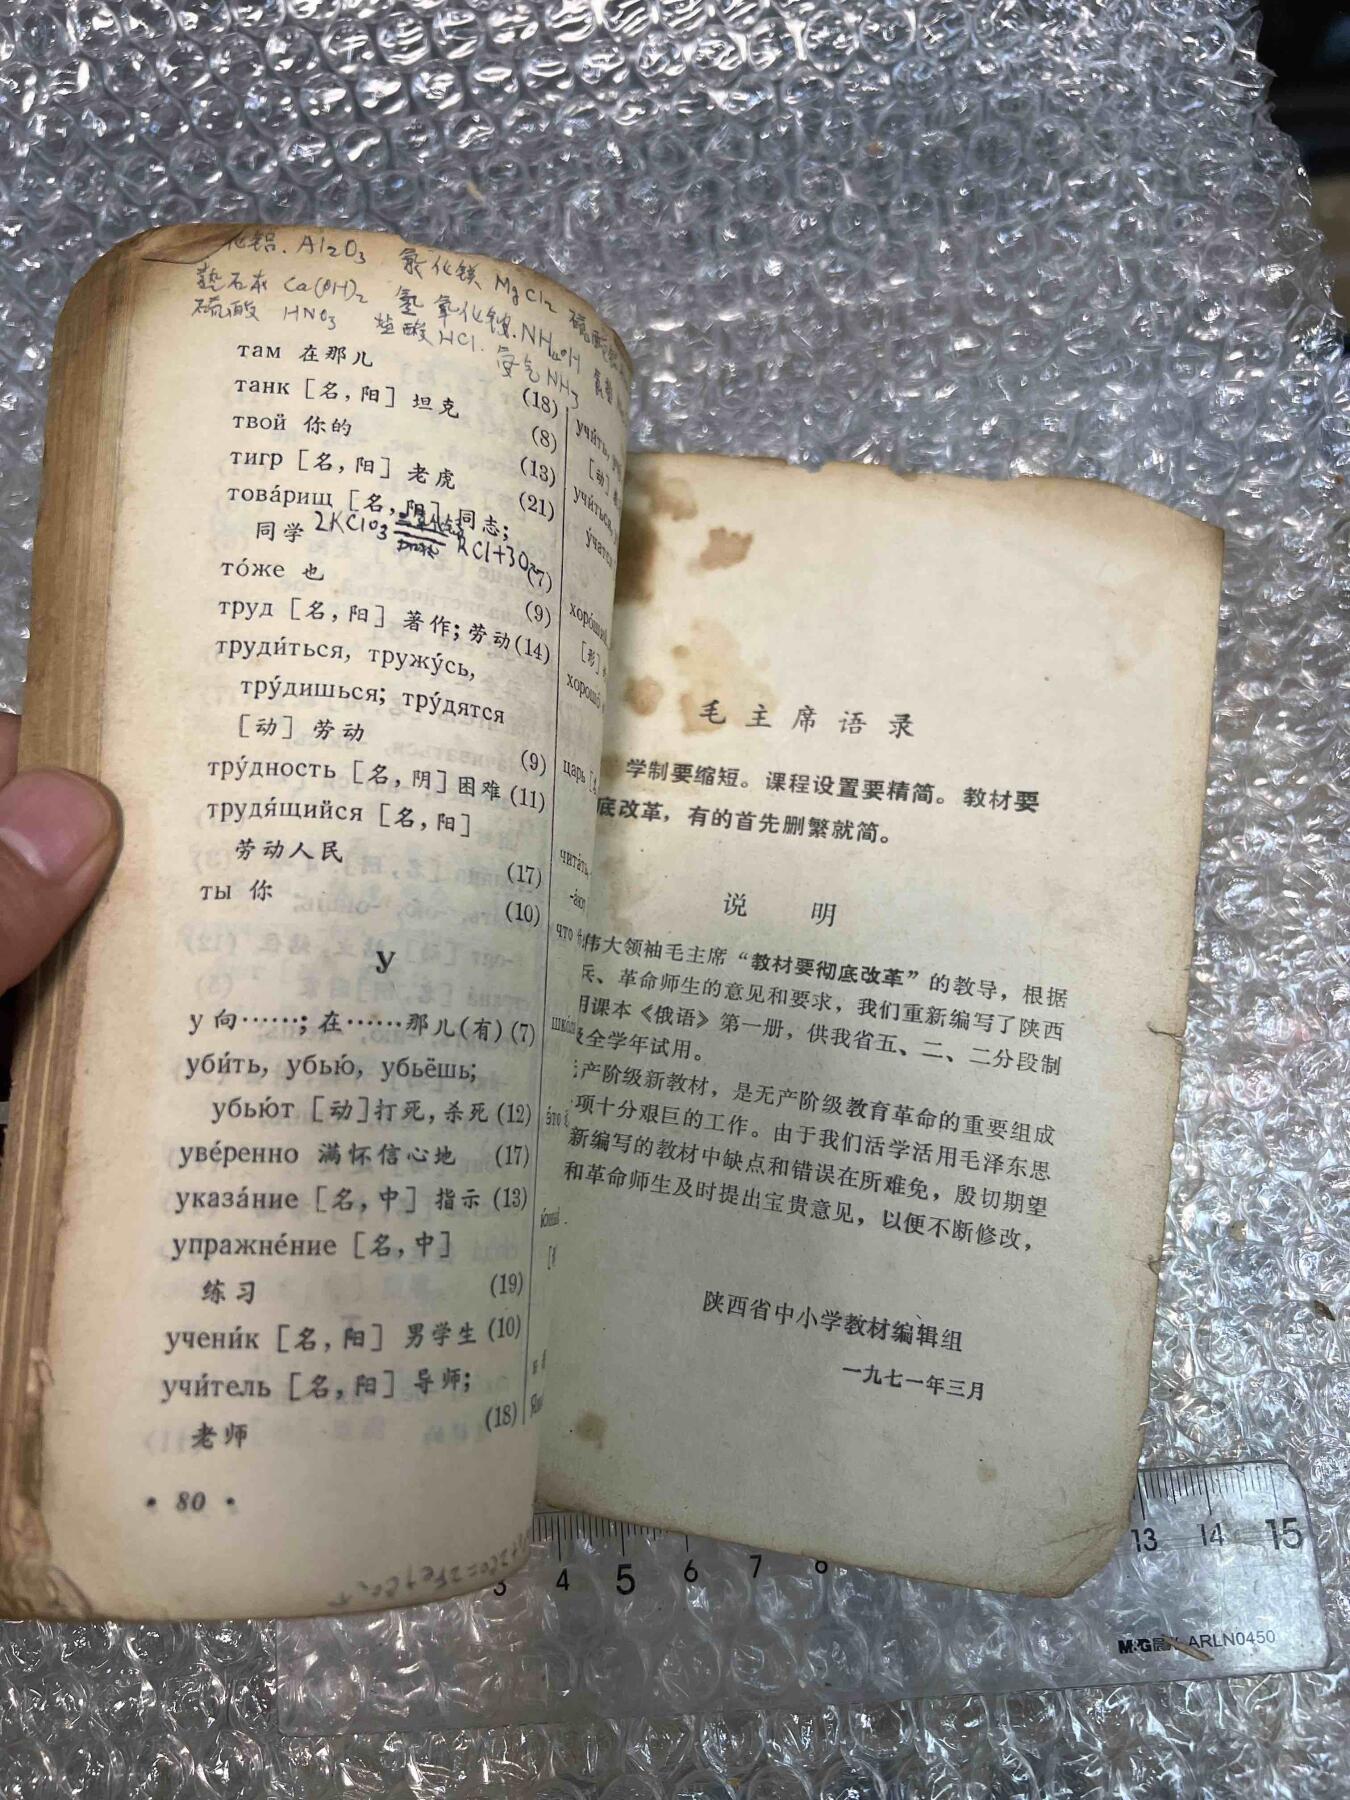 化铝. Al₂O₃ 氯化镁 MgCl₂
Ca(OH)₂ 氢氧化铵. NH₄OH
硫酸 HNO₃ 盐酸 HCl. NH₃
там 在那儿 (18)
танк [名,阳] 坦克 (8)
твой 你的 (13)
тигр [名,阳] 老虎 (21)
това́рищ [名,阳] 同志;
同学 (7)
2KClO₃ KCl+3O₂
то́же 也 (9)
труд [名,阳] 著作; 劳动(14)
труди́ться, тружу́сь,
тру́дишься; тру́дятся
[动] 劳动 (9)
тру́дность [名,阴] 困难 (11)
трудя́щийся [名,阳]
劳动人民 (17)
ты 你 (10)
У
у 向……; 在……那儿(有) (7)
уби́ть, убью́, убьёшь;
убью́т [动]打死,杀死 (12)
уве́ренно 满怀信心地 (17)
указа́ние [名,中] 指示 (13)
упражне́ние [名,中]
练习 (19)
учени́к [名,阳] 男学生 (10)
учи́тель [名,阳] 导师;
老师 (18)
• 80 •
учи́ть,
[动]
учи́ться,
хоро́ший
[形]
хорошо́
царь
чита́ть
-а́ют
что
э́то
毛主席语录
学制要缩短。课程设置要精简。教材要
底改革,有的首先删繁就简。
说 明
伟大领袖毛主席“教材要彻底改革”的教导,根据
兵、革命师生的意见和要求,我们重新编写了陕西
用课本《俄语》第一册,供我省五、二、二分段制
级全学年试用。
产阶级新教材,是无产阶级教育革命的重要组成
项十分艰巨的工作。由于我们活学活用毛泽东思
新编写的教材中缺点和错误在所难免,殷切期望
和革命师生及时提出宝贵意见,以便不断修改,
陕西省中小学教材编辑组
一九七一年三月
3 4 5 6 7 8 13 14 15
M&G晨 ARLN0450